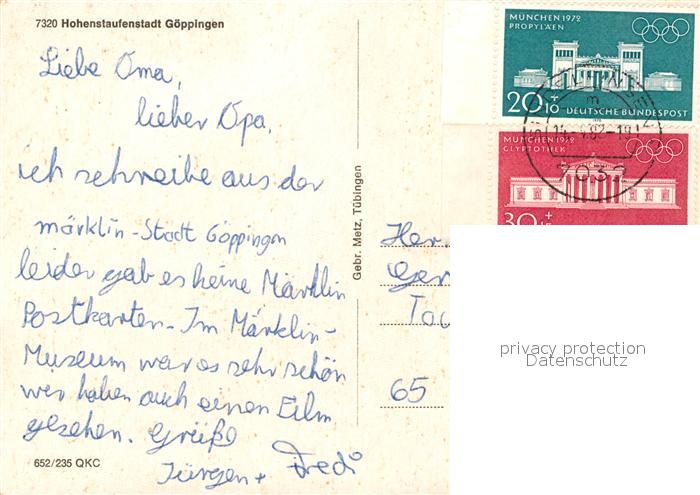 7320 Hohenstaufenstadt Göppingen
Liebe Oma,
lieber Opa,
ich schreibe aus der
märklin-Stadt Göppingen
leider gab es keine Märklin
Postkarten. Im Märklin-
Museum war es sehr schön
wir haben auch einen Film
gesehen. Grüße
Jürgen + Fredi
652/235 QKC
Gebr. Metz, Tübingen
MÜNCHEN 1972
PROPYLÄEN
20+10 DEUTSCHE BUNDESPOST
MÜNCHEN 1972
GLYPTOTHEK
30+
7032
Her
Ger
65
privacy protection
Datenschutz